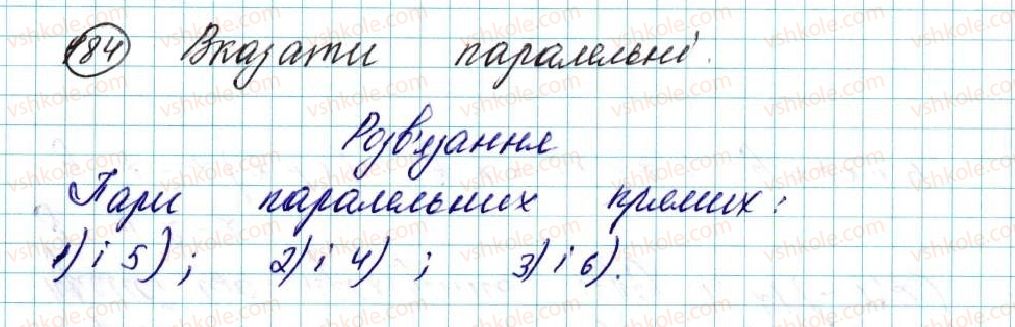 184 Вказати паралельні.
Розв'язання
Пари паралельних прямих:
1) і 5); 2) і 4); 3) і 6).